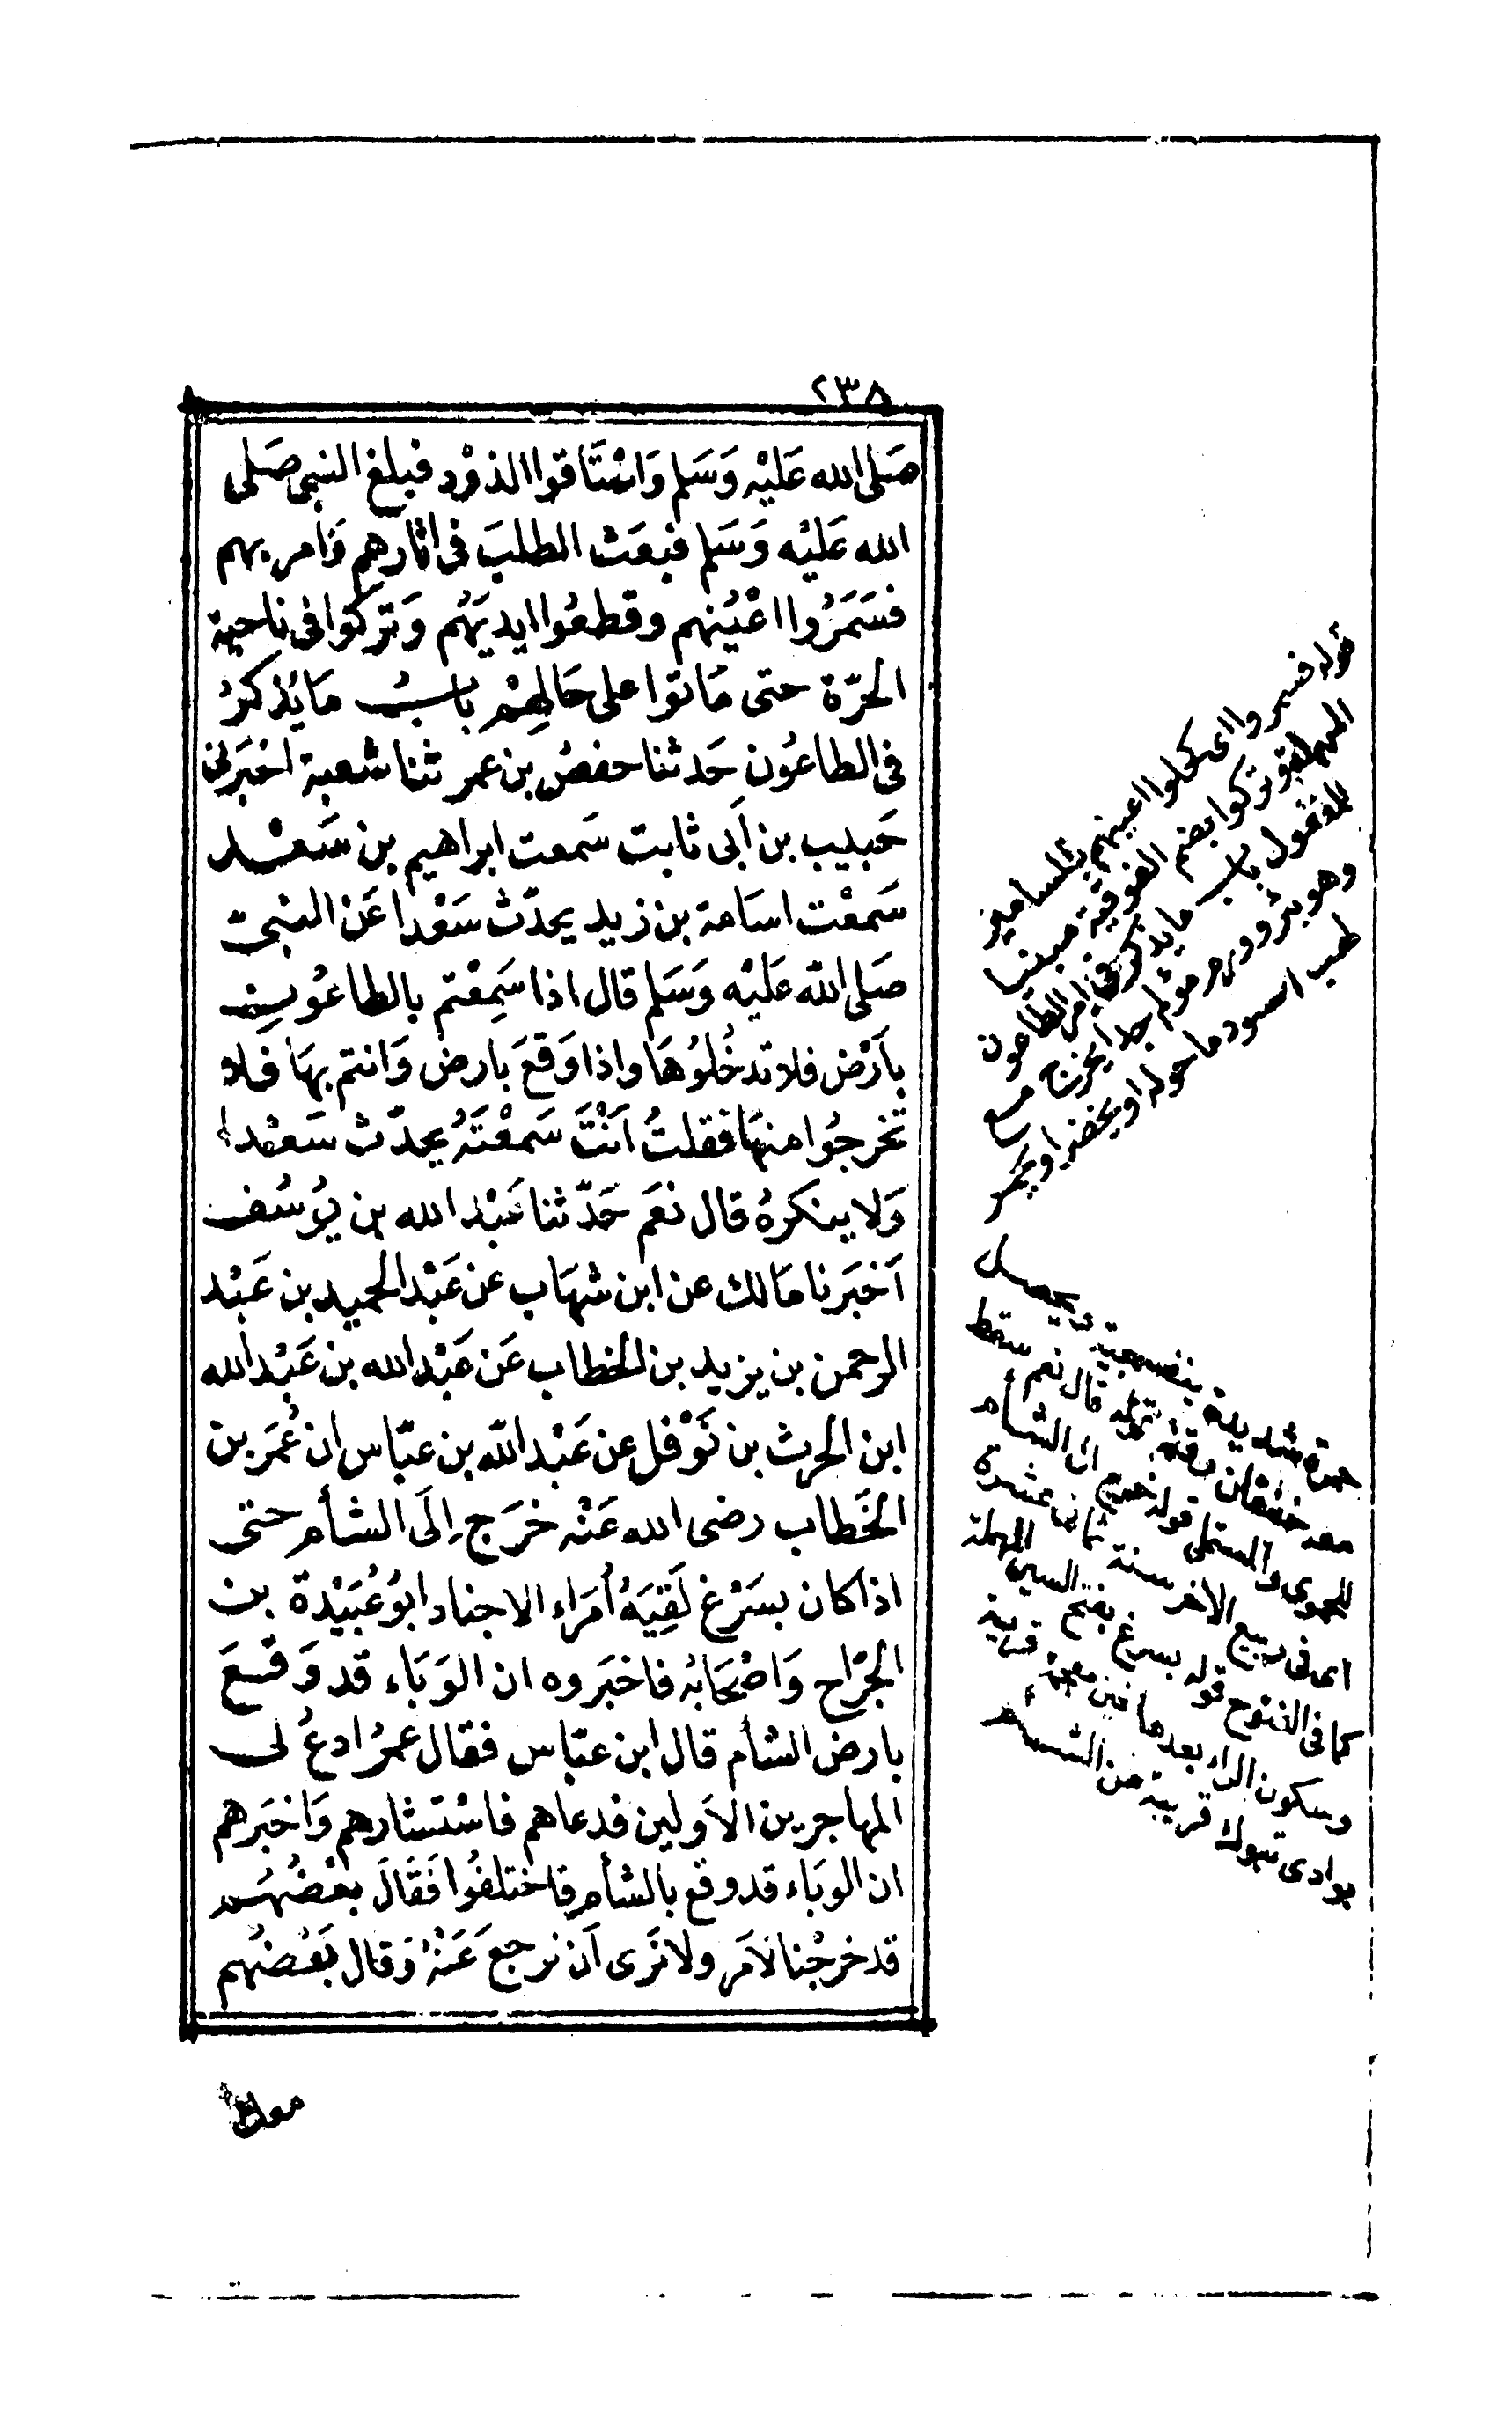 ٢٣٨
صَلى الله عَليْه وَسَلم وَاسْتَاقوا الذوْد فبلغ النبى صَلى
الله عَليْه وَسَلم فبعَث الطلبَ فى اثارهم وَامر بهم
فسَمَرُوا اعْيُنهم وقطعُوا ايديَهُم وَتركوا فى ناحية
الحرّة حتى مَاتوا على حَالِهِمْ بابُ مَا يُذكرُ
فى الطاعُون حَدثنا حفصُ بن عمر ثنا شعبة اخبَرنى
حَبيب بن أبى ثابت سَمعت ابراهيم بن سَعْد
سَمعْت اسَامة بن زيد يحدّث سَعْدا عَن النبىّ
صَلى الله عَليْه وَسَلم قال اذا سَمِعْتم بالطاعُون
بأرْض فلا تدخُلوُهَا واذا وَقعَ بارض وَانتم بهَا فلا
تخرجُوا منهَا فقلتُ أنْتَ سَمعْتَهُ يحدّث سَعْدا
وَلا ينكرهُ قال نعَم حَدّثنا عَبْد الله بن يوُسُف
أخبَرنا مَالك عن ابن شهَاب عن عَبْد الحميد بن عَبْد
الرحمن بن يزيد بن الخطاب عَن عَبْد الله بن عَبْد الله
ابن الحرث بن نَوْفل عن عَبْد الله بن عبّاس ان عُمَر بن
الخَطاب رضى الله عَنْه خرَج إلَى الشأم حتى
اذا كان بسَرْغ لَقِيَهُ أمَراء الاجناد ابوُ عُبَيْدة بن
الجرّاح وَاصْحَابُه فاخبَروه ان الوَبَاء قد وَقعَ
بارض الشأم قال ابن عبّاس فقال عمرُ ادعُ لى
المهاجرين الأولين فدعاهم فاسْتشارهم وَاخبَرهم
ان الوبَاء قد وقع بالشأم فاختلفُوا فَقَالَ بعْضُهُم
قد خرجْنا لأمر ولا نَرى أن نرجعَ عَنْهُ وَقال بَعْضهُم
قوله فسمروا اى كحلوا اعينهم بالمسامير
وتركوا بضم الفوقية مبنيا
للمفعول باب ما يذكر فى امر الطاعون
وهو بثر وورم مؤلم جدا يخرج مع
لهب اسود ما حوله او يخضر او يحمر
حمرة شديدة بنفسجية ويحصل
معه خفقان وقئ قوله قال نعم سقط
للحموى والمستملى قوله خرج الى الشأم
اى فى ربيع الاخر سنة ثمانى عشرة
كما فى الفتوح قوله بسرغ بفتح السين المهملة
وسكون الراء بعدها غين معجمة قرية
بوادى تبوك قريبة من الشأم